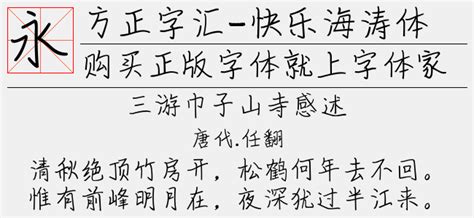 永
方正字汇-快乐海涛体
购买正版字体就上字体家
三游巾子山寺感述
唐代.任翻
清秋绝顶竹房开，松鹤何年去不回。
惟有前峰明月在，夜深犹过半江来。